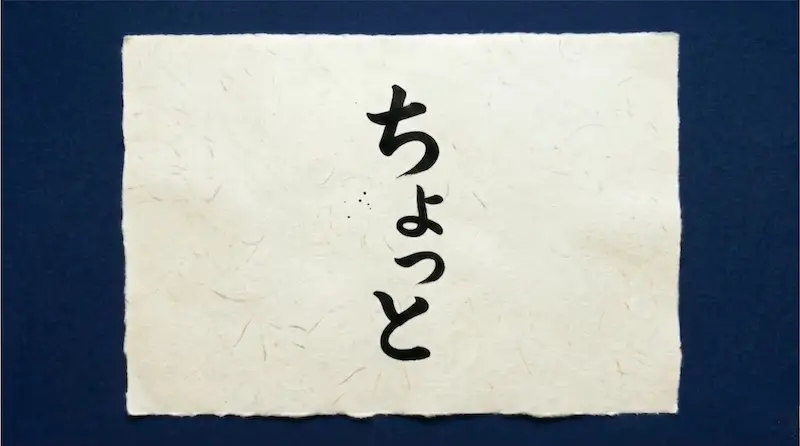 ちょっと